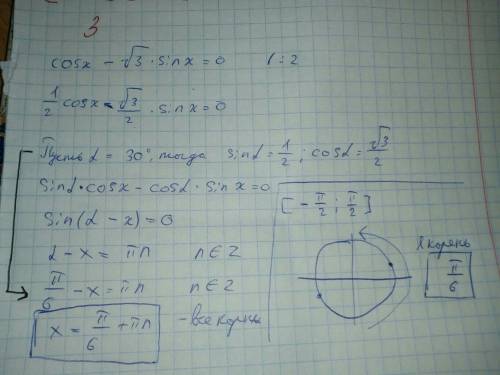 3
cosx - √3 · sinx = 0 /:2
1/2 cosx - √3/2 · sinx = 0
Пусть α = 30°, тогда sinα = 1/2; cosα = √3/2
sinα · cosx - cosα · sinx = 0
sin(α - x) = 0
α - x = πn n ∈ Z
π/6 - x = πn n ∈ Z
x = π/6 + πn - все корни
[-π/2; π/2]
1 корень
π/6